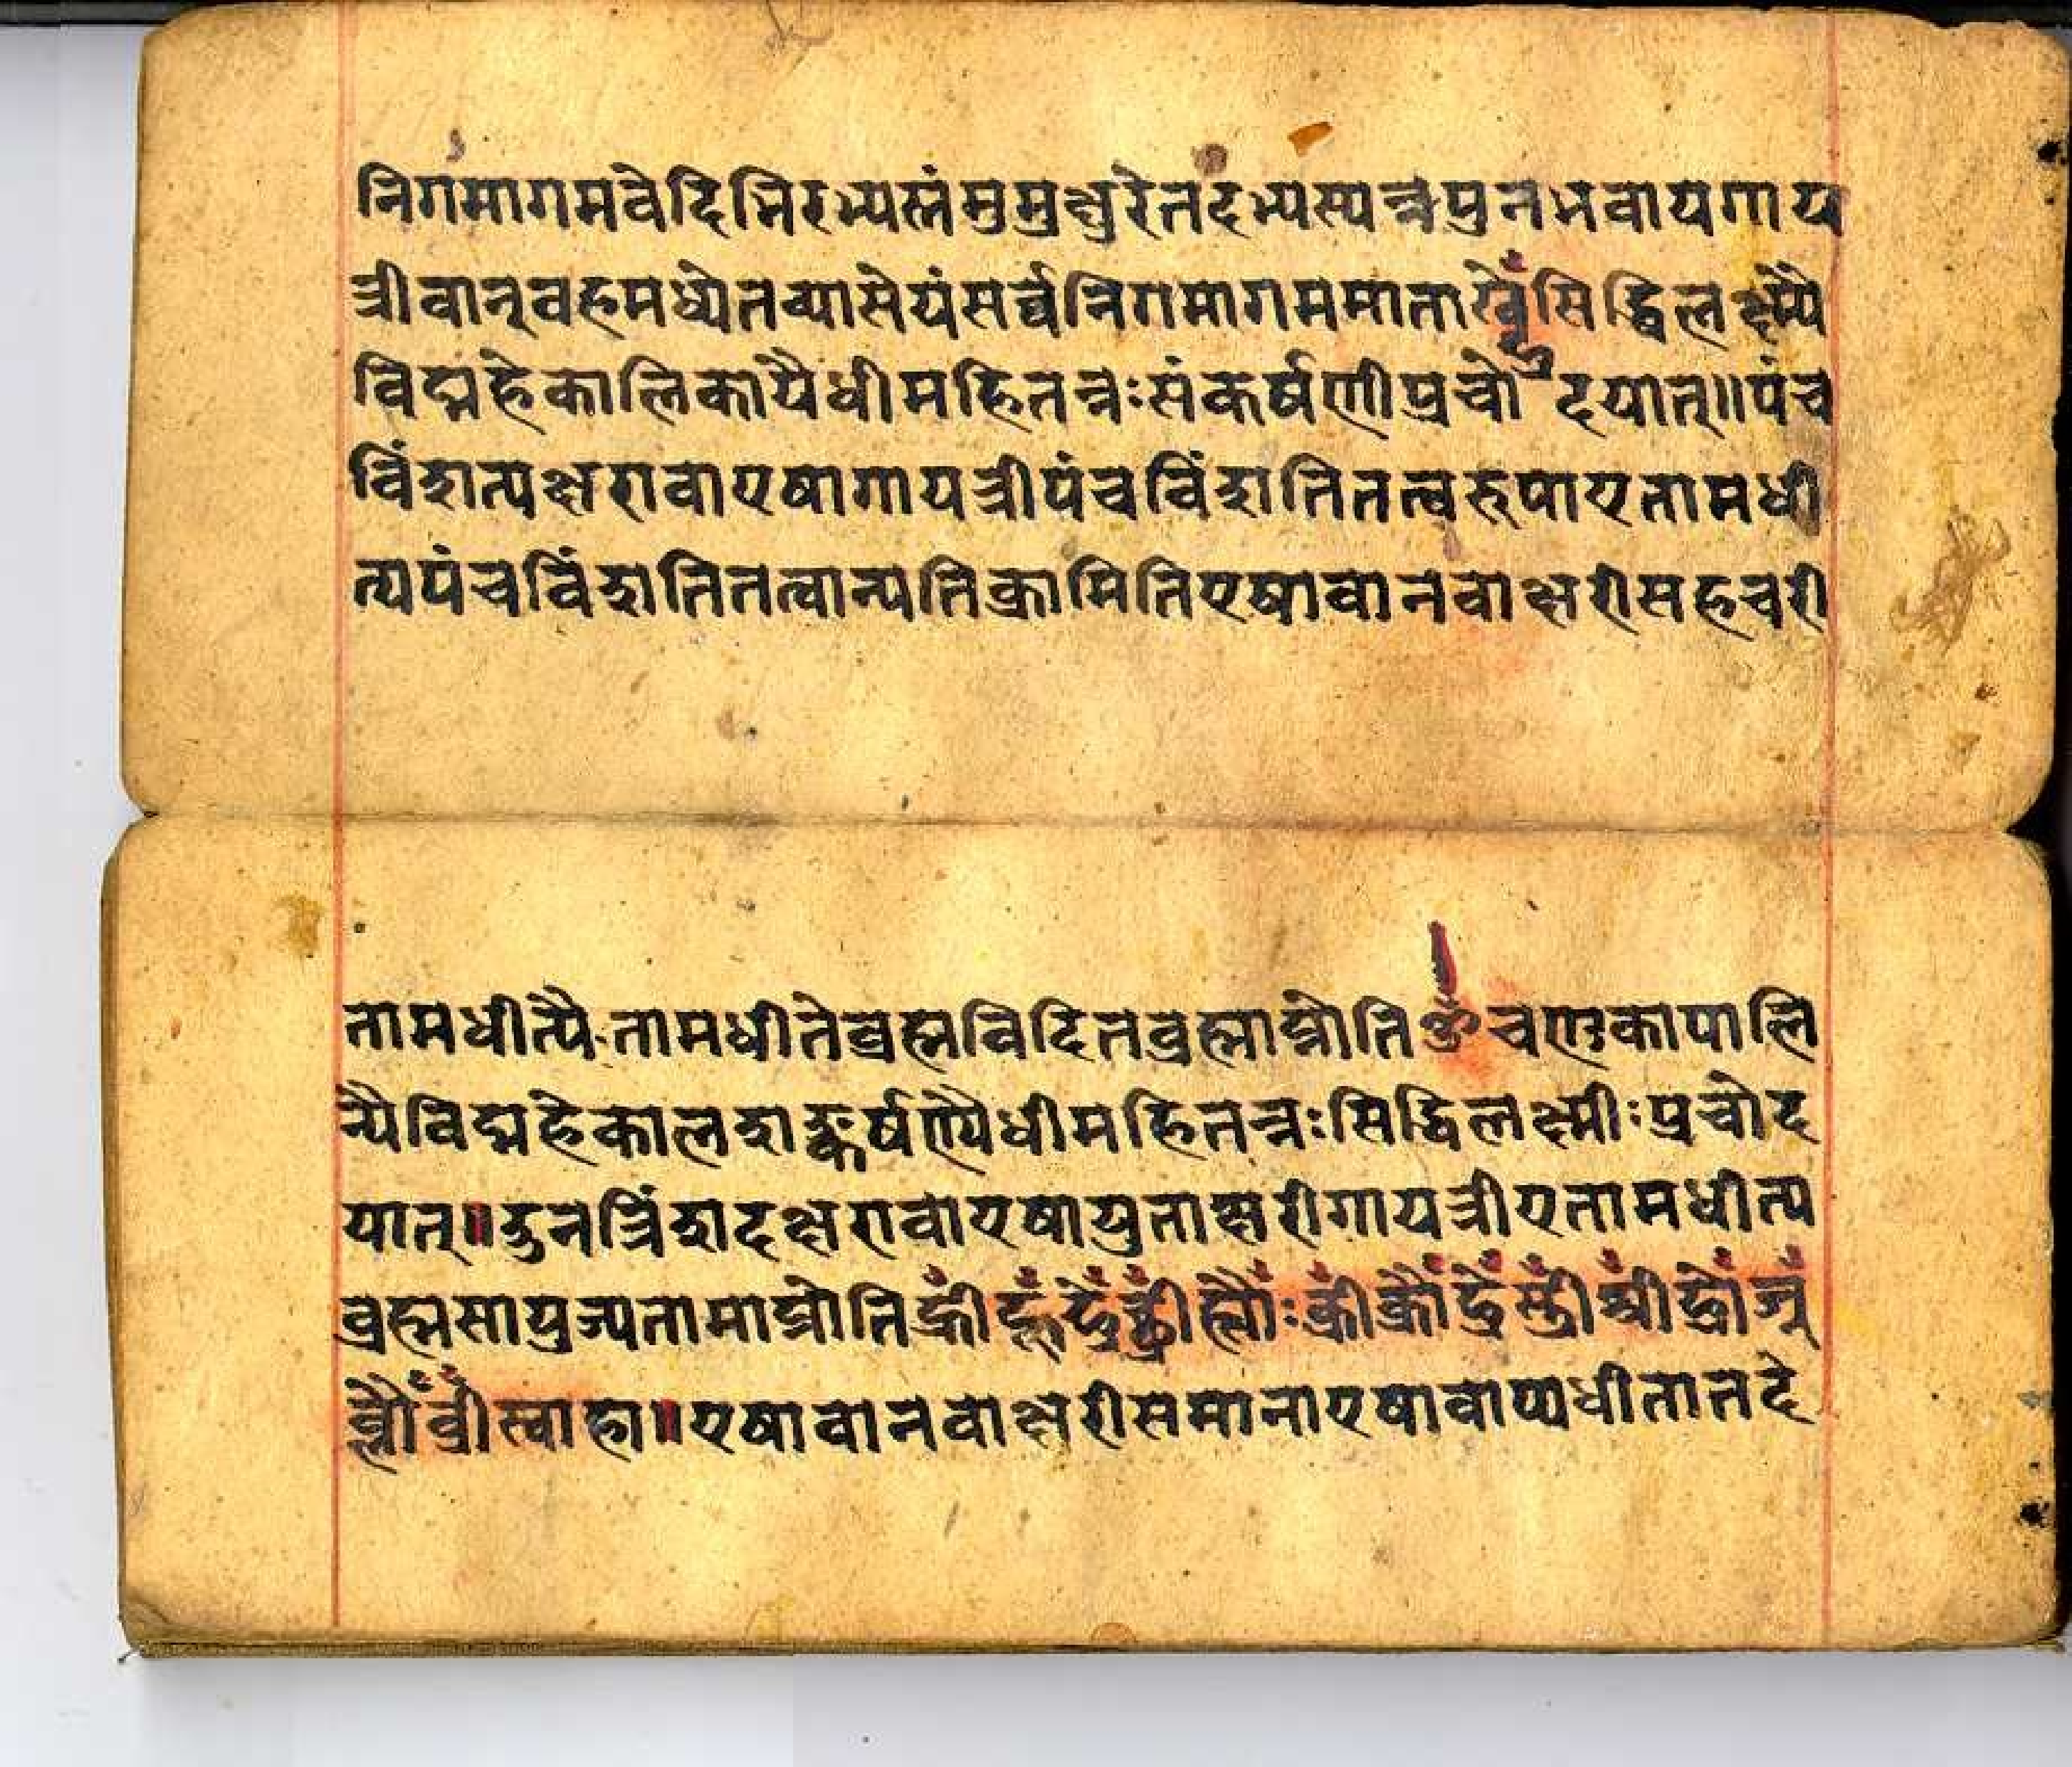 निगमागमवेदिभिरभ्यस्तंमुमुक्षुरेतदभ्यस्यन्नपुनर्भवायगाय
त्रीवान्वहमध्येतव्यासेयंसर्व्वनिगमागममाता सिद्धिलक्ष्म्यै
विद्महेकालिकायैधीमहितन्नःसंकर्षणीप्रचोदयात्॥पंच
विंशत्यक्षरावाएषागायत्रीपंचविंशतितत्वरुपाएतामधी
त्यपंचविंशतितत्वान्यतिक्रामितिएषावानवाक्षरीसहचरी
तामधीत्यैतामधीतेब्रह्मविदितब्रह्माप्नोतिॐचण्डकापालि
न्यैविद्महेकालशङ्कर्षण्यैधीमहितन्नःसिद्धिलक्ष्मीःप्रचोद
यात्॥उनत्रिंशदक्षरावाएषायुताक्षरीगायत्रीएतामधीत्य
ब्रह्मसायुज्यतामाप्नोति
स्वाहा॥एषावानवाक्षरीसमानाएषावाप्यधीतातदे